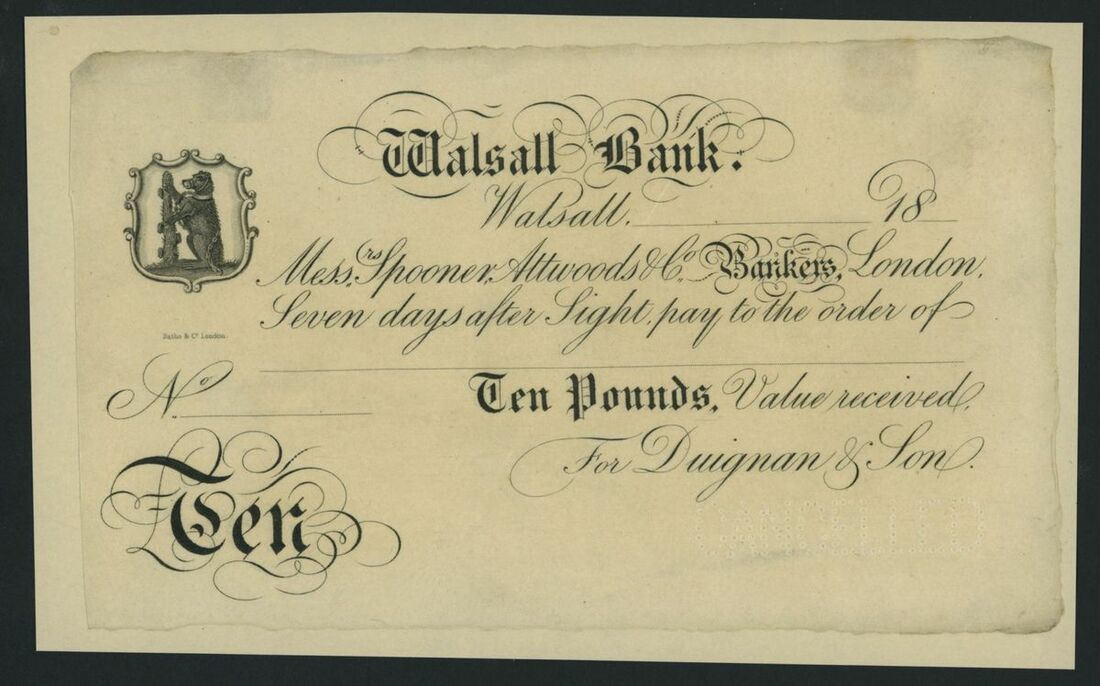 Walsall Bank.
Walsall, 18
Messrs Spooner, Attwoods & Co. Bankers, London.
Seven days after Sight, pay to the order of
Batho & Co London.
No.
Ten Pounds, Value received.
For Duignan & Son.
Ten
CANCELLED